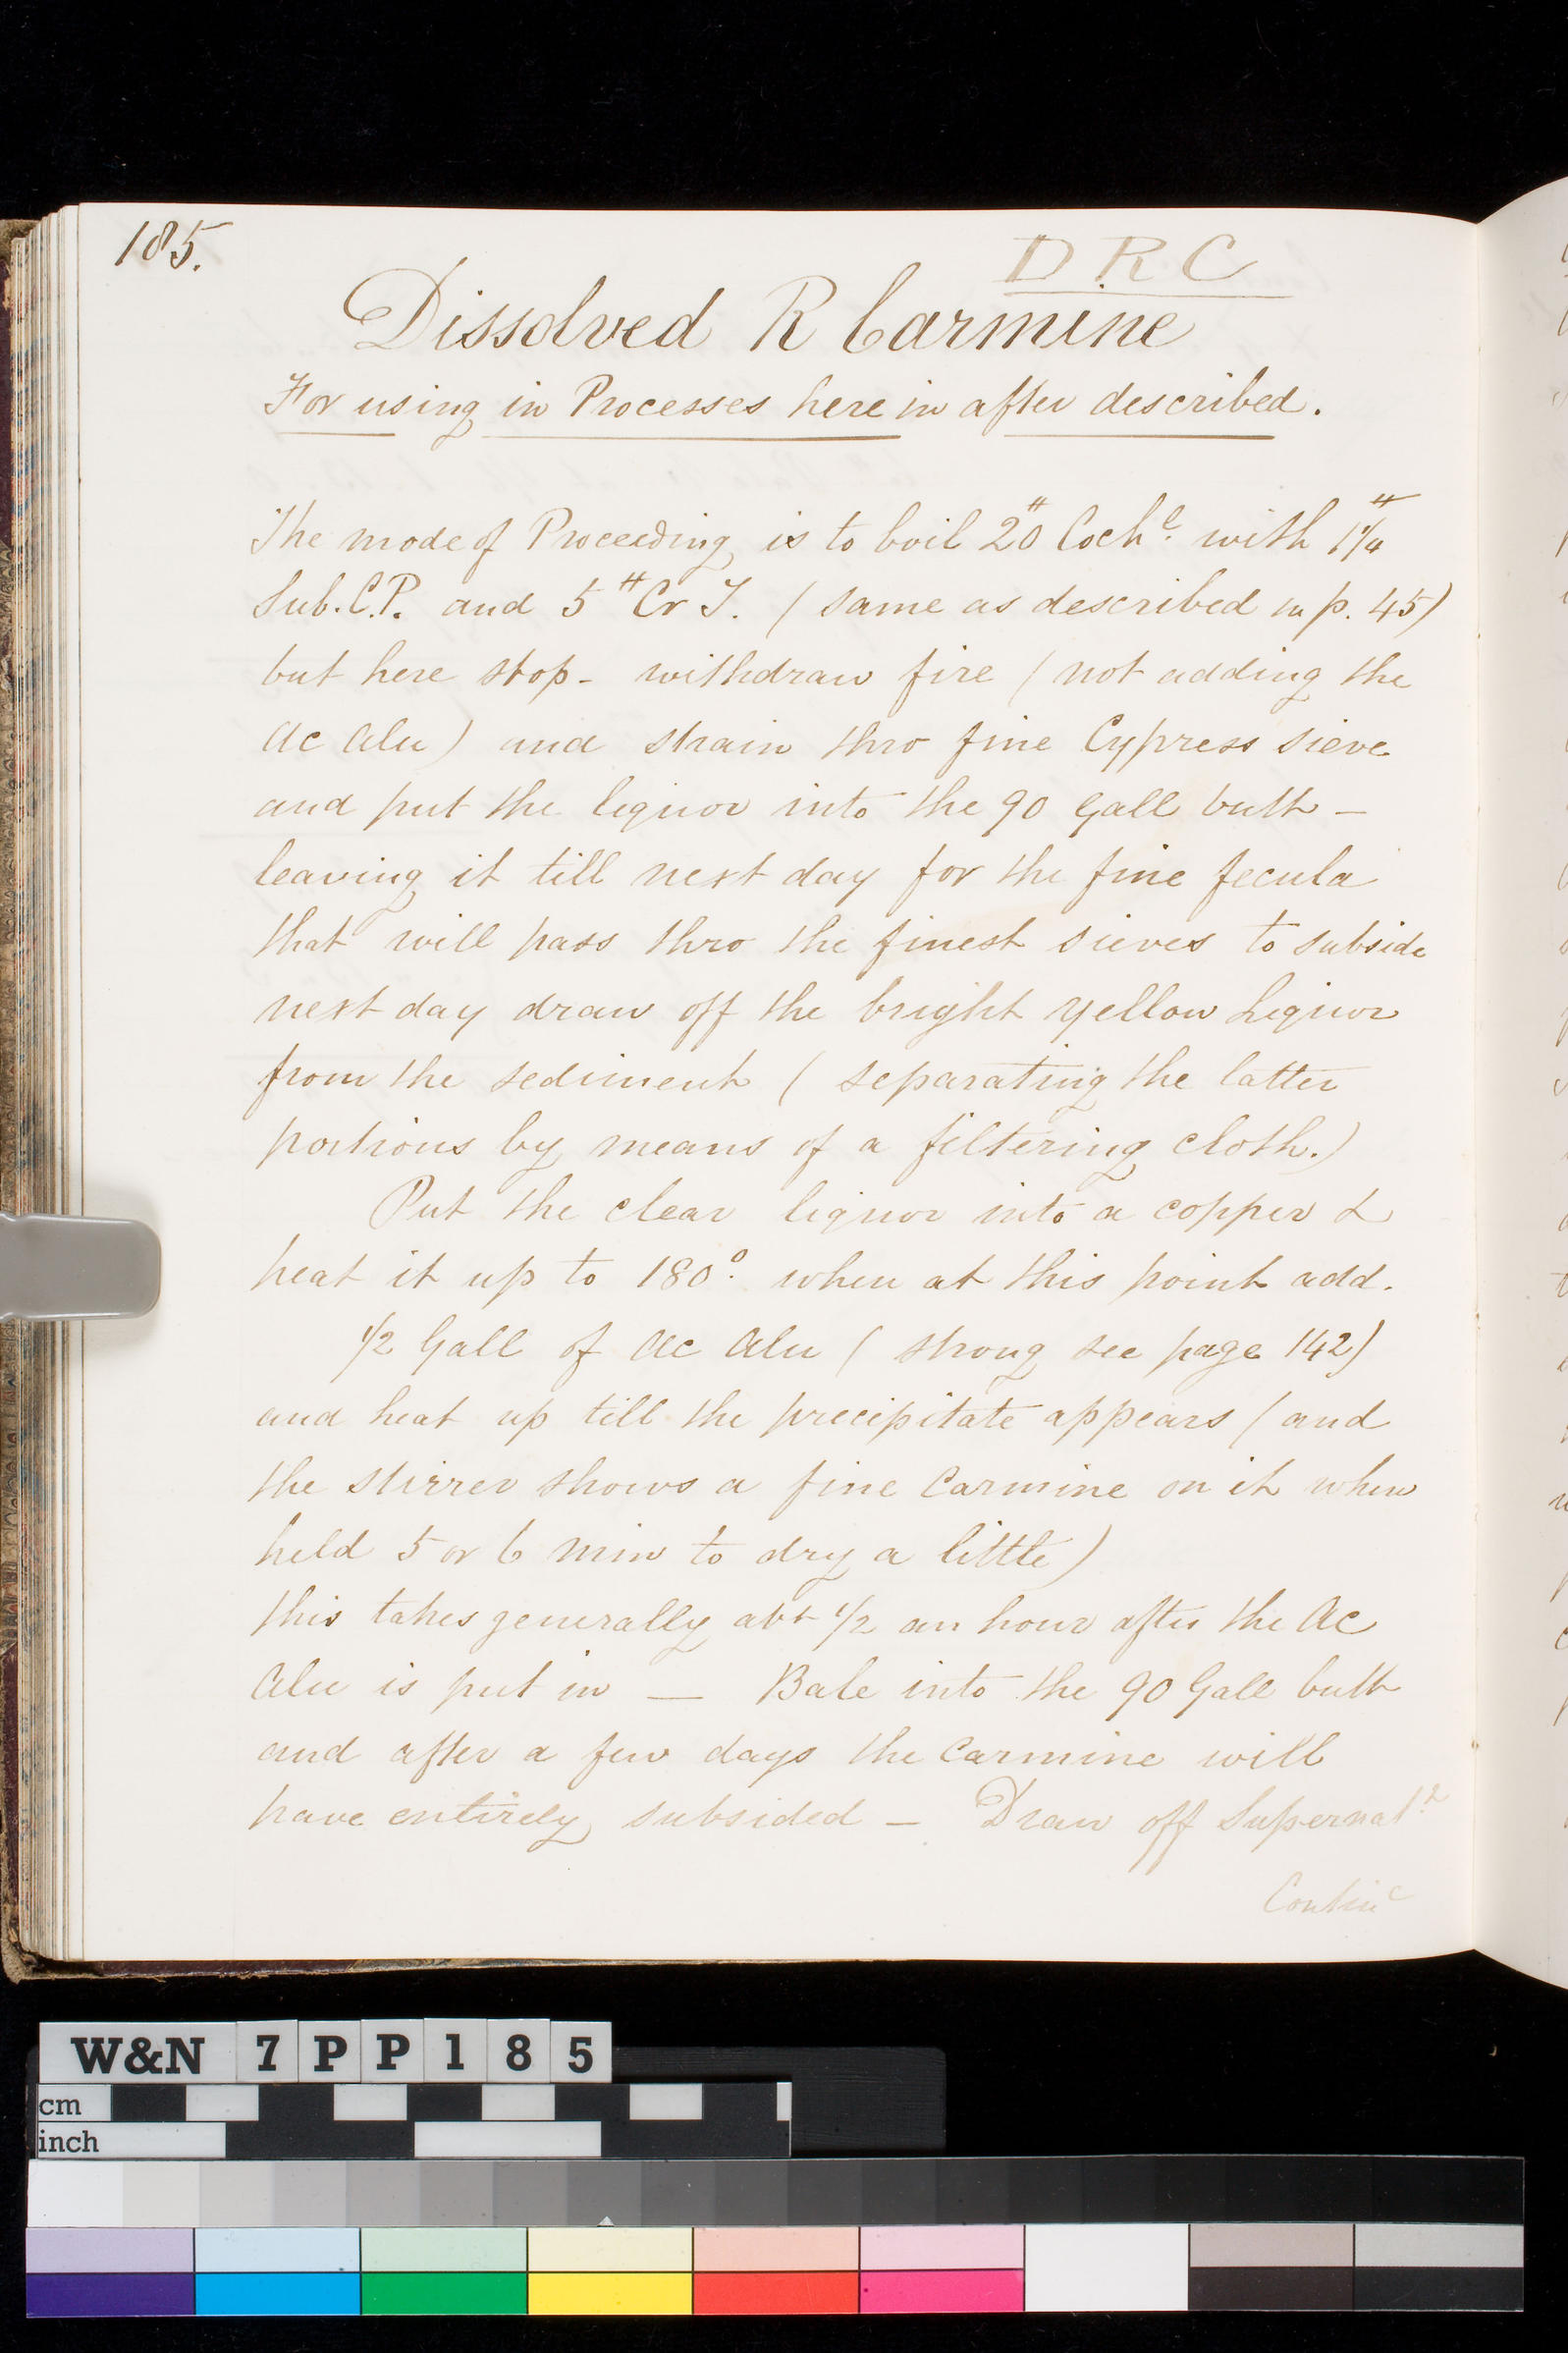 185.
D. R C
Dissolved R Carmine
For using in Processes here in after described.
The mode of Proceeding is to boil 20 # Cochl. with 1 1/4 #
Sub. C.P. and 5 # Cr T. (same as described in p. 45)
but here stop - withdraw fire (not adding the
Ac Alu) and strain thro fine Cypress sieve
and put the liquor into the 90 Gall butt -
leaving it till next day for the fine fecula
that will pass thro the finest sieves to subside
next day draw off the bright yellow Liquor
from the sediment (separating the latter
portions by means of a filtering cloth.)
Put the clear liquor into a copper &
heat it up to 180°. when at this point add.
1/2 Gall of Ac Alu (strong see page 142)
and heat up till the precipitate appears (and
the stirrer shows a fine Carmine on it when
held 5 or 6 min to dry a little)
this takes generally abt 1/2 an hour after the Ac
Alu is put in — Bale into the 90 Gall butt
and after a few days the Carmine will
have entirely subsided - Draw off Supernat
Contin
W&N 7PP185
cm
inch